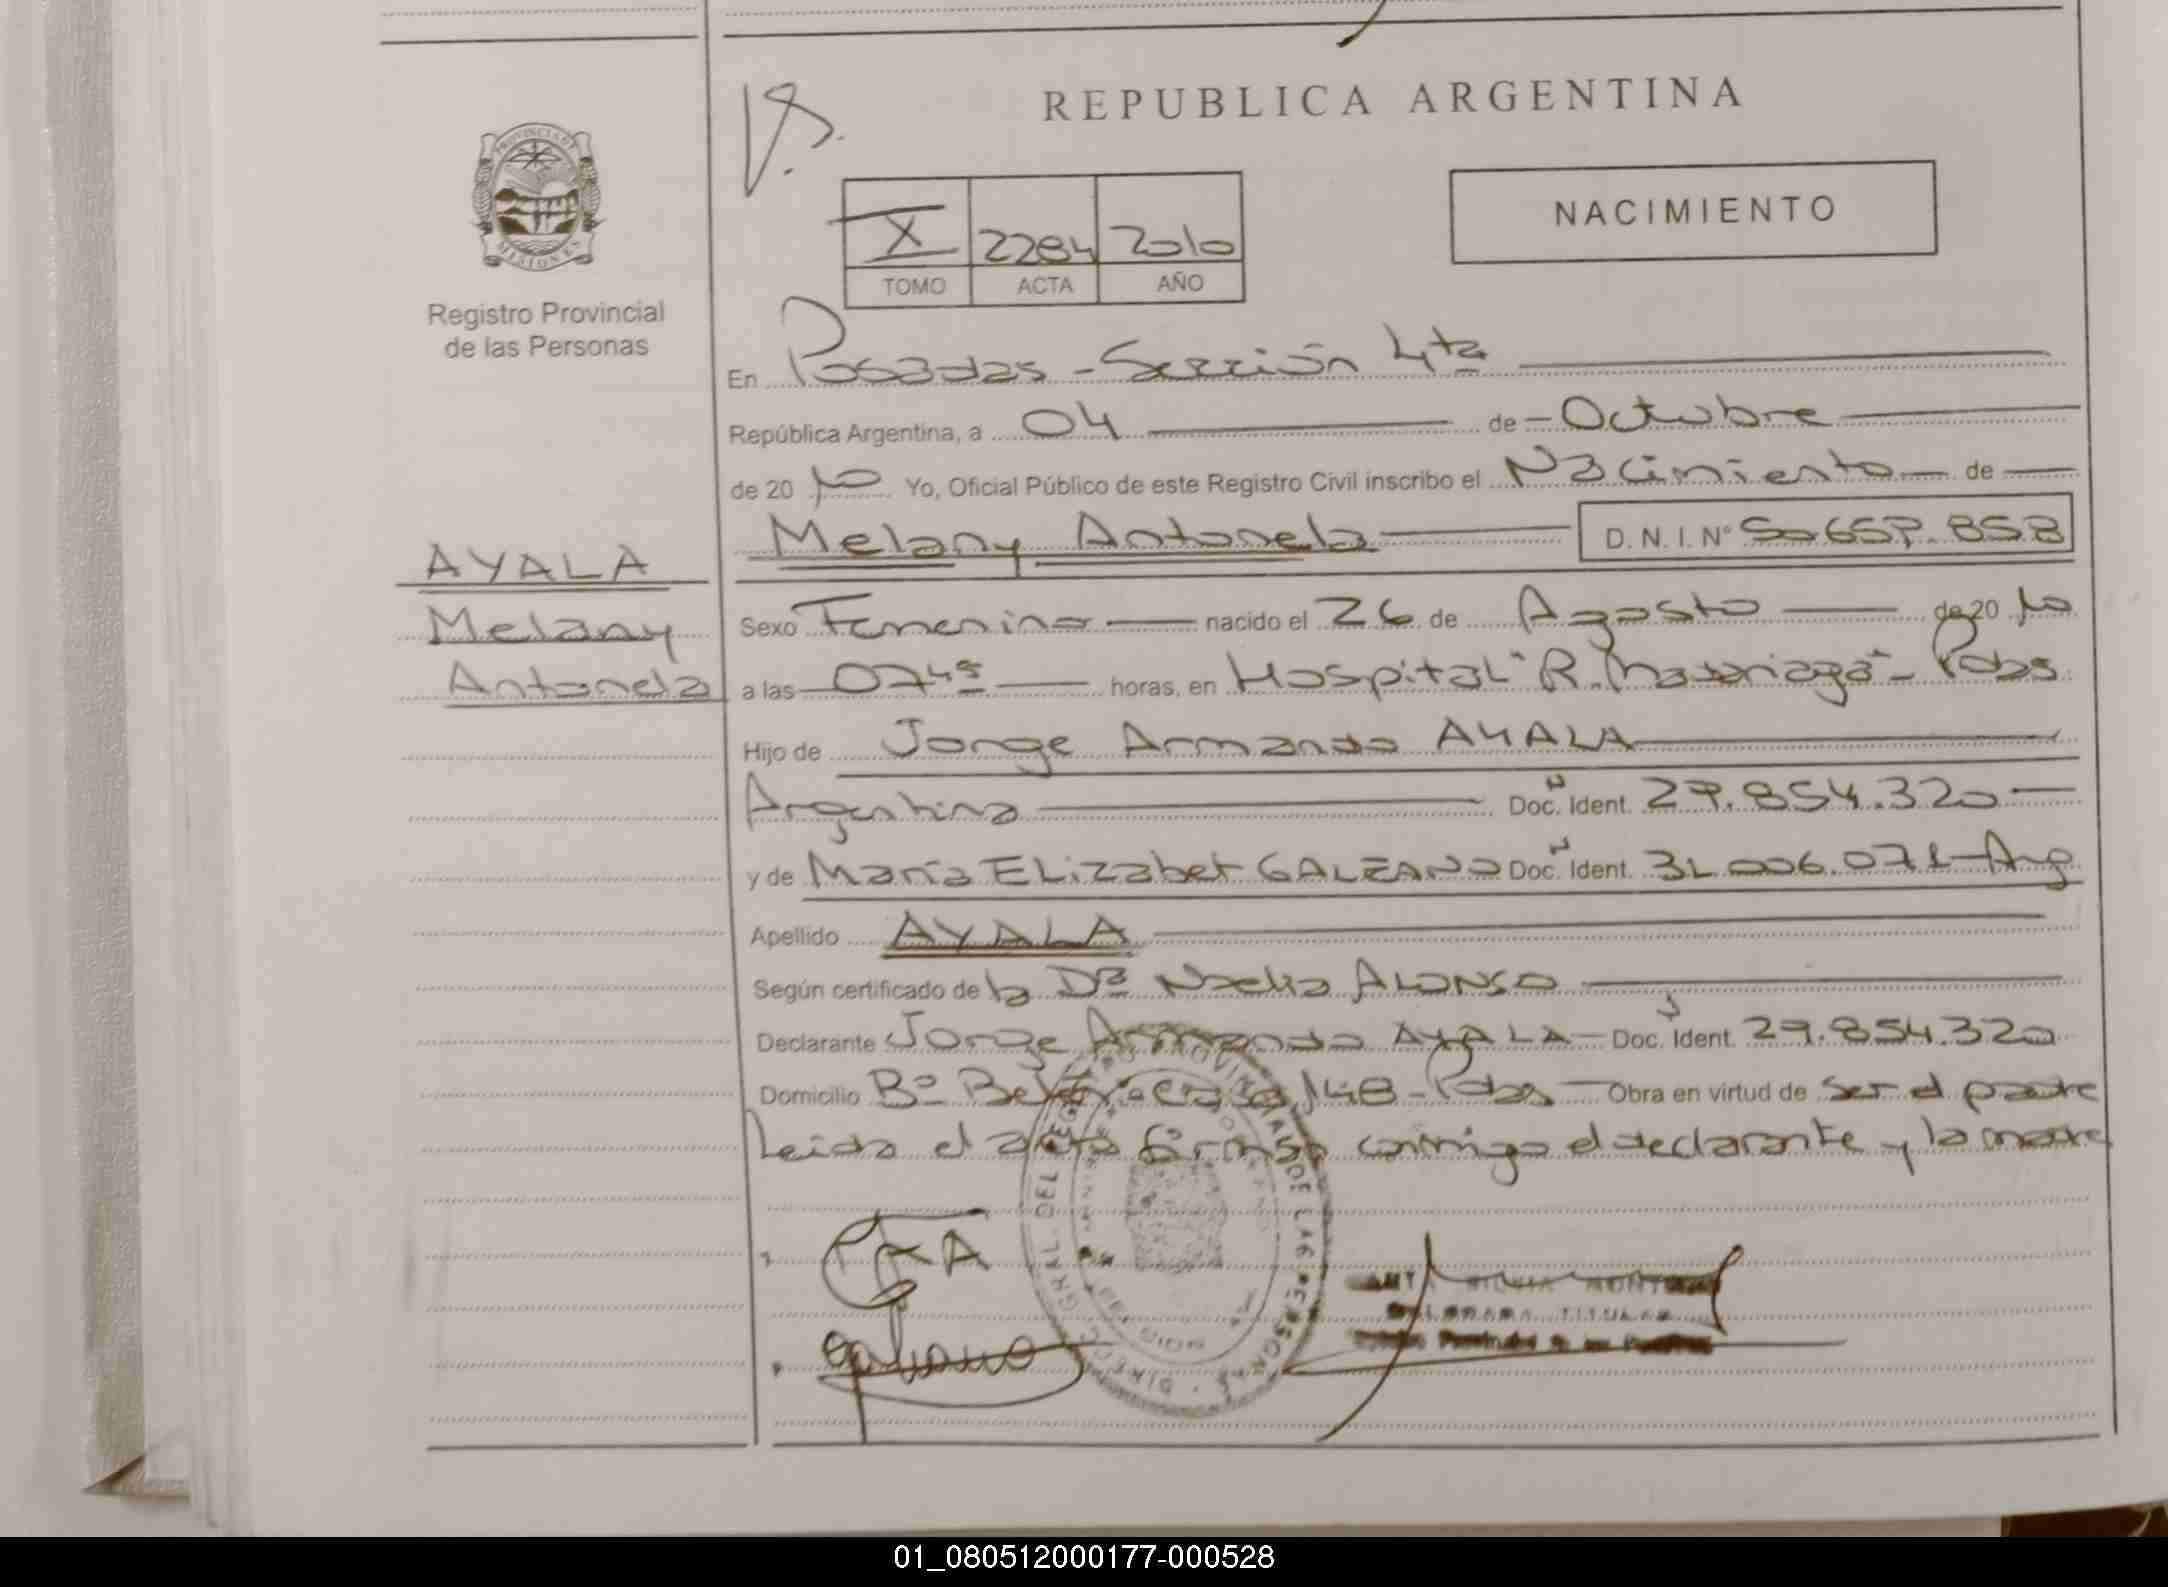 REPUBLICA ARGENTINA
PROVINCIA DE MISIONES
NACIMIENTO
X 2284 2010
TOMO ACTA AÑO
Registro Provincial
de las Personas
En Posadas - Sección 4ta
República Argentina, a 04 de Octubre
de 2010 Yo, Oficial Público de este Registro Civil inscribo el Nacimiento de
AYALA
Melany
Antonela
Melany Antonela D.N.I. Nº 50.657.858
Sexo Femenino nacido el 26 de Agosto de 2010
a las 07 45 horas, en Hospital "R. Madariaga" - Pdas
Hijo de Jorge Armando AYALA
Argentino Doc. Ident. 27.854.320
y de María ELizabet GALEANO Doc. Ident. 31.006.071 - Arg
Apellido AYALA
Según certificado de la Dra Noelia ALONSO
Declarante Jorge Armando AYALA - Doc. Ident. 27.854.320
Domicilio Bº Belén Casa 148 - Pdas - Obra en virtud de ser el padre
Leida el acta firman conmigo el declarante y la madre
Galeano
TITULAR
01_080512000177-000528